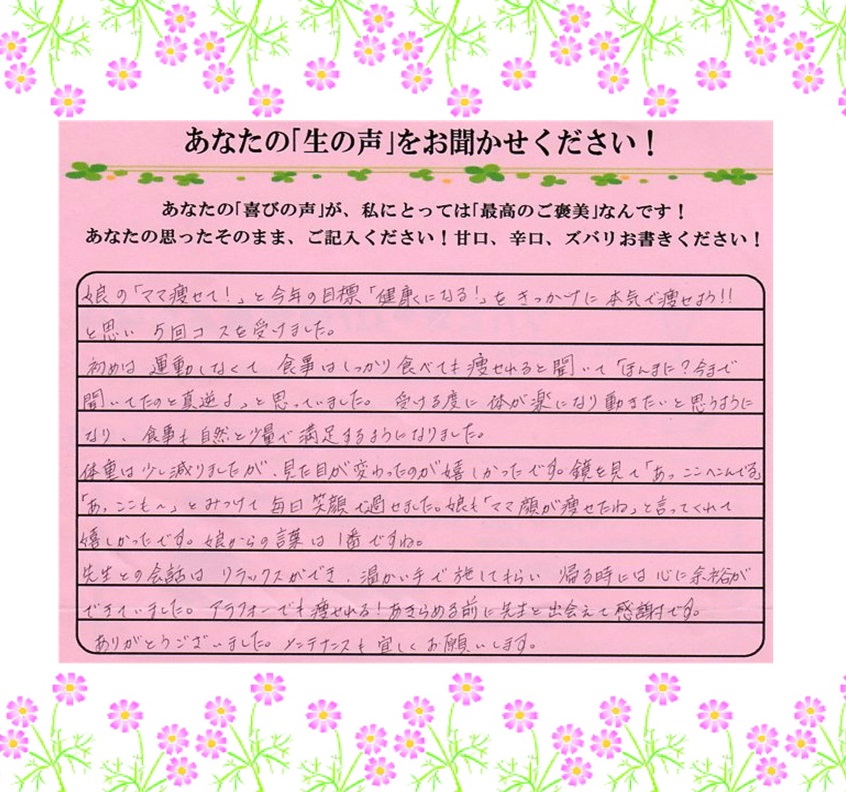 あなたの「生の声」をお聞かせください！
あなたの「喜びの声」が、私にとっては「最高のご褒美」なんです！
あなたの思ったそのまま、ご記入ください！甘口、辛口、ズバリお書きください！
娘の「ママ痩せて！」と今年の目標「健康になる！」をきっかけに本気で痩せよう!!
と思い 5回コースを受けました。
初めは 運動しなくて 食事はしっかり食べても痩せれると聞いて「ほんまに？今まで
聞いてたのと真逆よ」と思っていました。 受ける度に 体が楽になり動きたいと思うように
なり、食事も自然と少量で満足するようになりました。
体重は少し減りましたが、見た目が変わったのが嬉しかったです。鏡を見て「あっ ここへこんでる」
「あっ、ここも〜」とみつけて毎日笑顔で過せました。娘も「ママ顔が痩せたね」と言ってくれて
嬉しかったです。娘からの言葉は1番ですね。
先生との会話は リラックスができ、温かい手で施してもらい 帰る時には心に余裕が
できていました。アラフォーでも痩せれる！あきらめる前に先生と出会えて感謝です。
ありがとうございました。メンテナンスも宜しくお願いします。